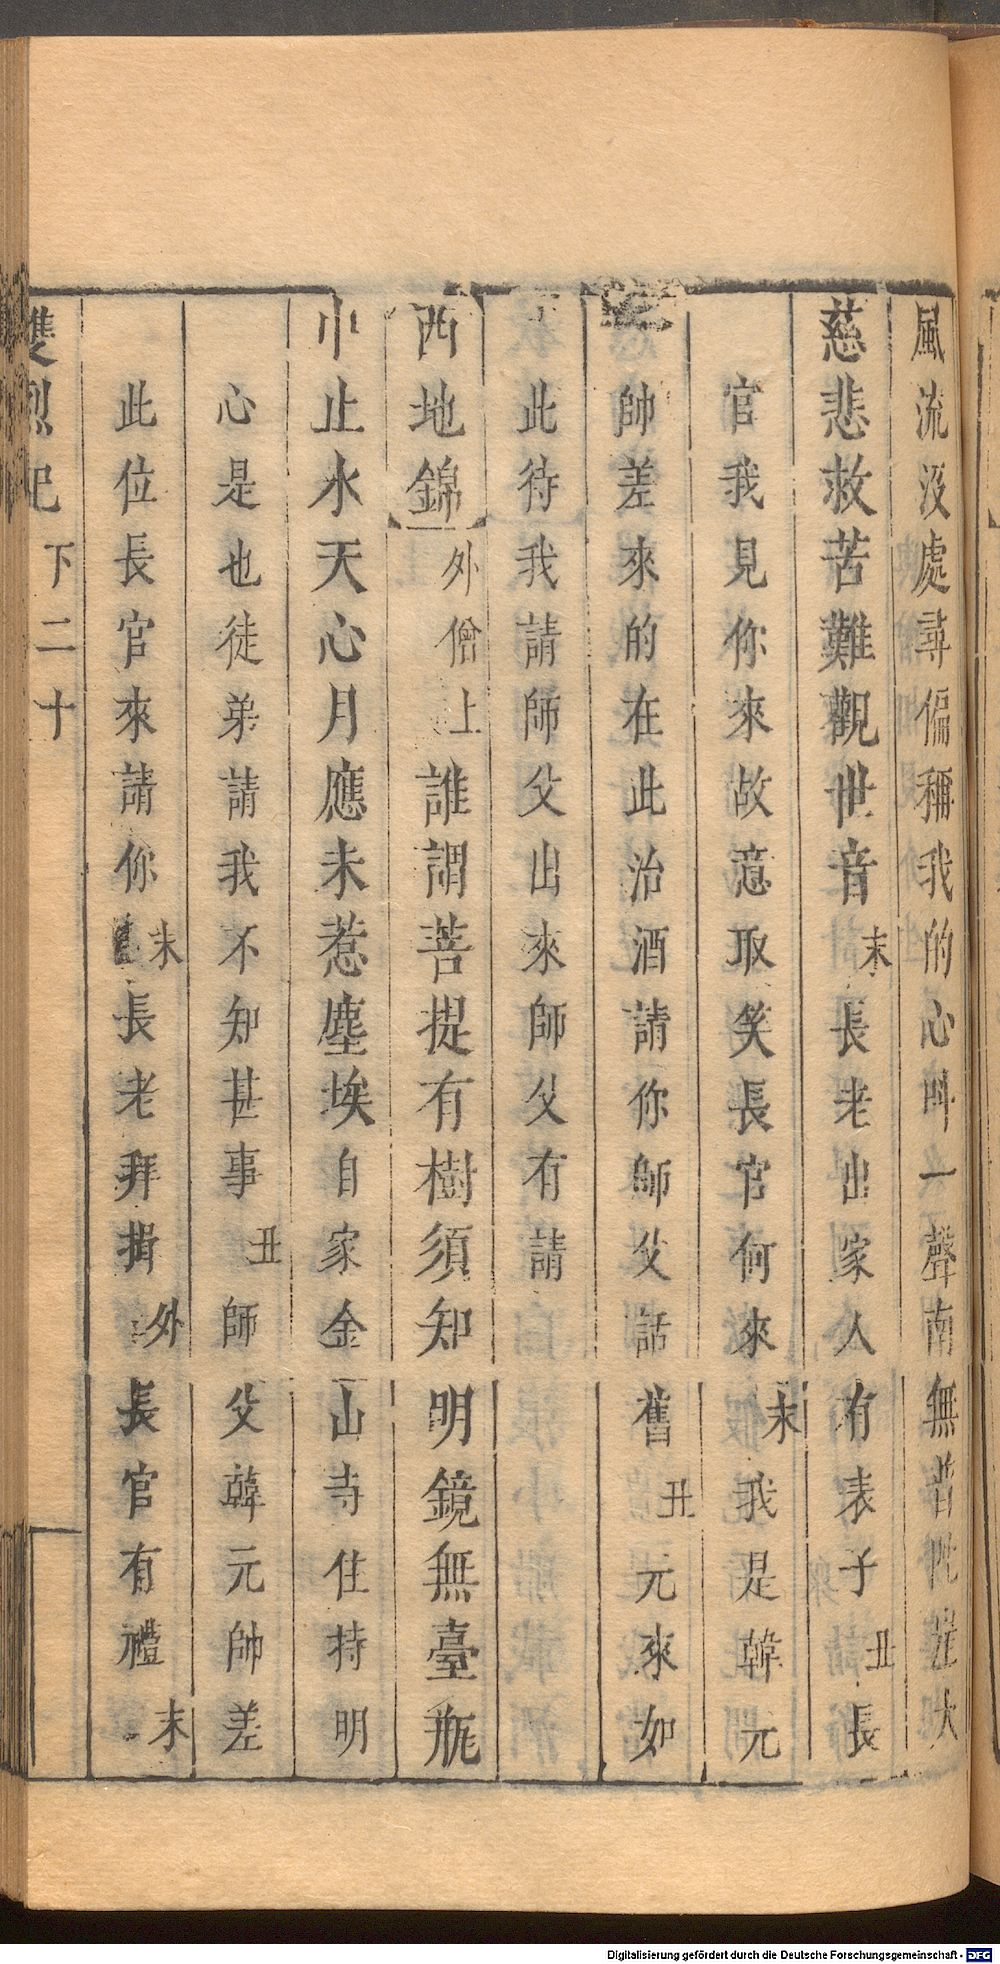 風流沒處尋偏稱我的心叫一聲南無普陀崖大
慈悲救苦難觀世音末長老出家人有表子丑長
官我見你來故意取笑長官何來末我是韓元
帥差來的在此治酒請你師父話舊丑元來如
此待我請師父出來師父有請
西地錦外僧上誰謂菩提有樹須知明鏡無臺瓶
中止水天心月應未惹塵埃自家金山寺住持明
心是也徒弟請我不知甚事丑師父韓元帥差
此位長官來請你末長老拜揖外長官有禮末
雙烈記 下二十
Digitalisierung gefördert durch die Deutsche Forschungsgemeinschaft - DFG